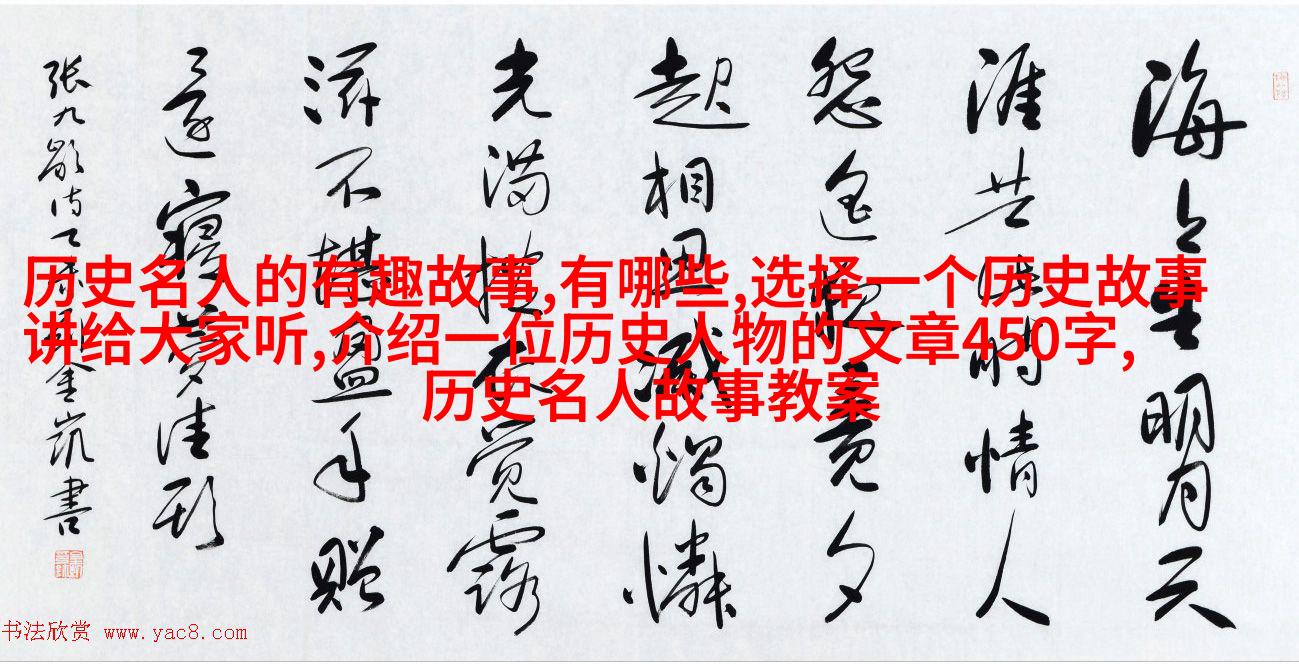 历史名人的有趣故事,有哪些,选择一个历史故事
讲给大家听,介绍一位历史人物的文章450字,
历史名人故事教案
海上生明月天
涯共此時情人
怨遥夜竟夕
起相思滅燭憐
光满披衣觉露
滋不堪盈手贈
還寝夢佳期
張九龄诗 金凯書
书法欣赏 www.yac8.com